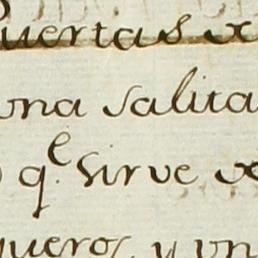 Puertas
una salita
q.e sirve
queros, y un